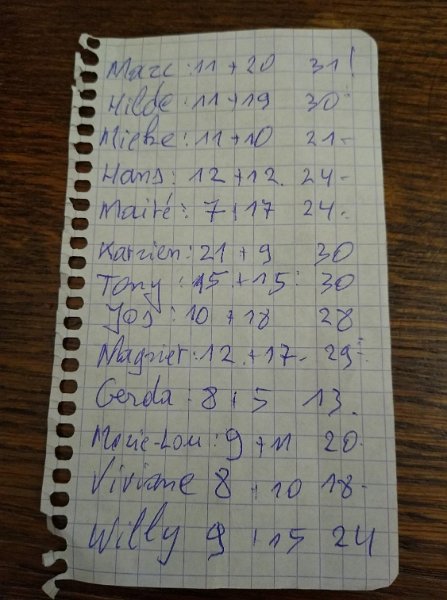 Marc : 11 + 20 31!
Hilde : 11 + 19 30
Mieke : 11 + 10 21-
Hans : 12 + 12. 24-
Maité : 7 + 17 24-
Katrien : 21 + 9 30
Tony : 15 + 15 : 30
Jos : 10 + 18 28
Magriet : 12 + 17- 29-
Gerda : 8 + 5 13.
Marie-Lou : 9 + 11 20-
Viviane 8 + 10 18-
Willy 9 + 15 24